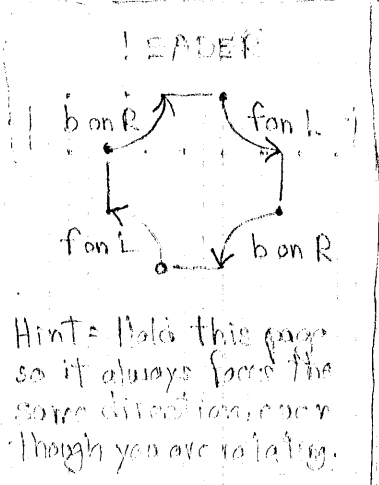 LEADER
b on R
f on L
f on L
b on R
Hint= Hold this page
so it always faces the
same direction, even
though you are rotating.